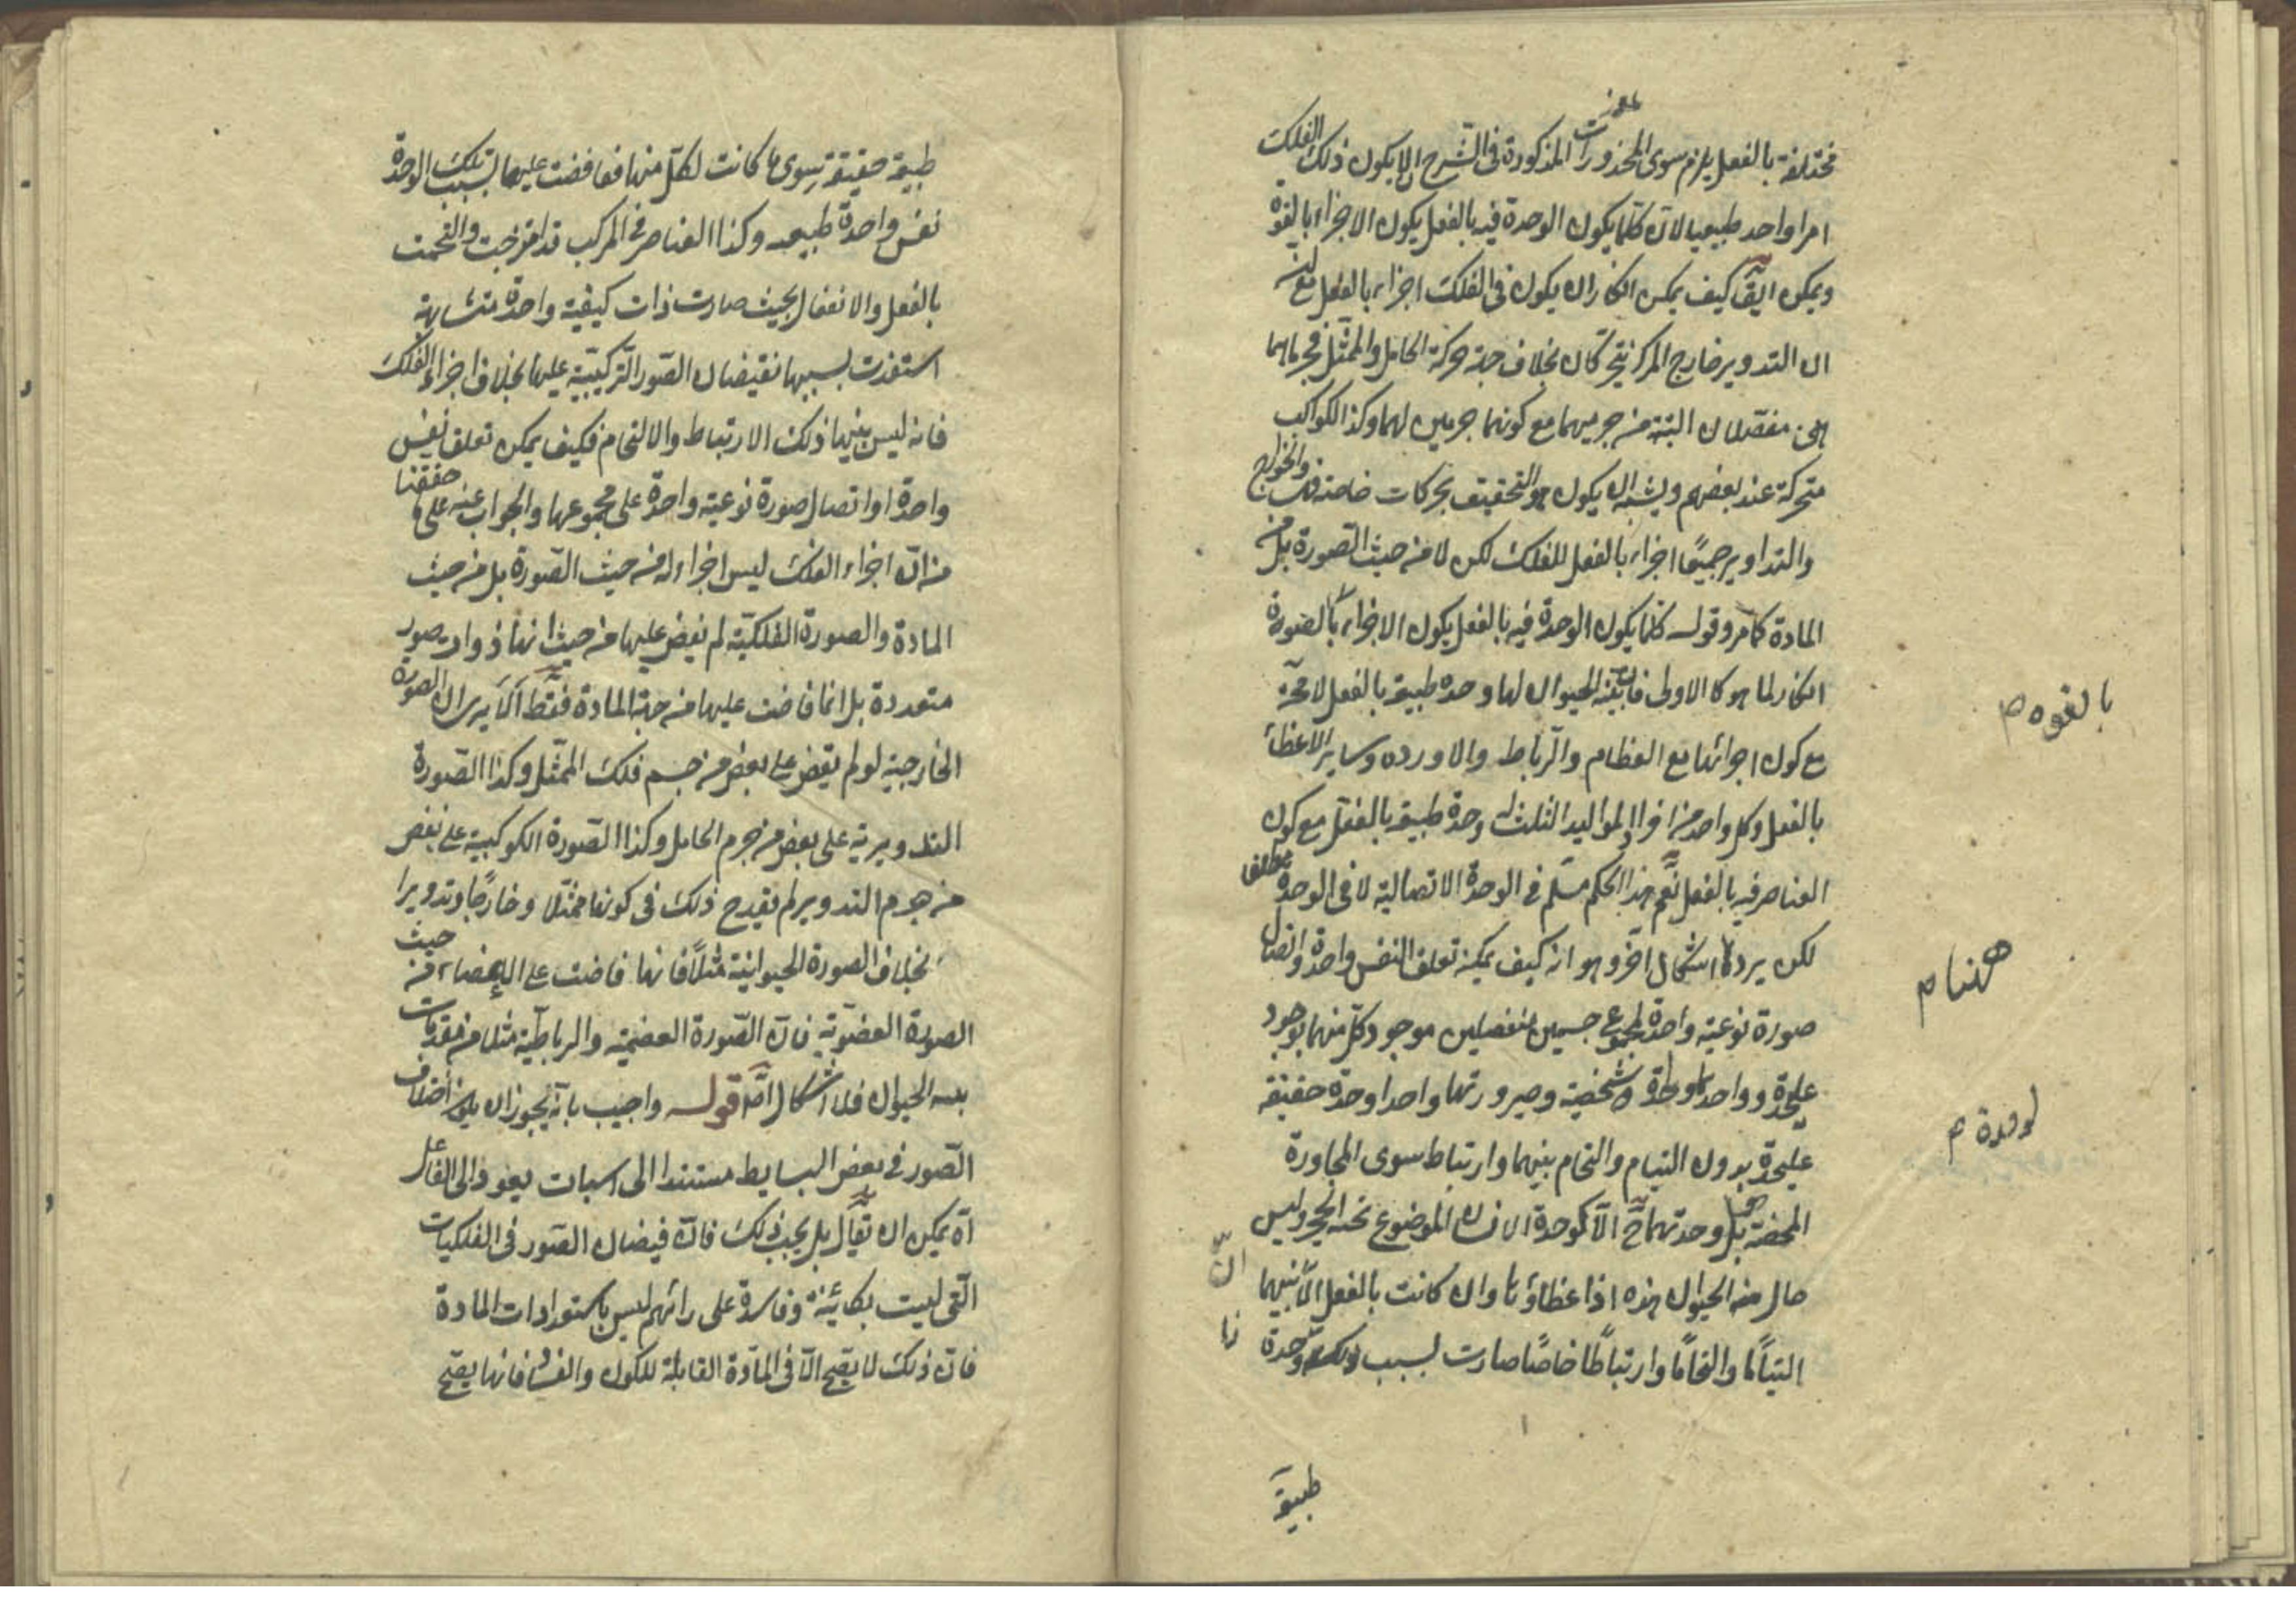 مختلفة بالفعل يلزم سوى المحذورات المذكورة فى الشرح ان لا يكون ذلك الفلك
امرا واحدا طبيعيا لان كلما يكون الوحدة فيه بالفعل يكون الاجزاء بالقوة
ويمكن كيف يمكن انكار ان يكون فى الفلك اجزاء بالفعل مع انه
ان التدوير خارج المركز كان بخلاف جهة حركة الحامل والممثل فجرماهما
منفصلان البتة من جرميهما مع كونهما جرمين لهما وكذا الكواكب
متحركة عند بعضهم ويشبه ان يكون هو التحقيق بحركات خاصة والخوارج
والتداوير جميعًا اجزاء بالفعل للفلك لكن لا من حيث الصورة بل من
المادة كما مر وقوله كلما يكون الوحدة فيه بالفعل يكون الاجزاء بالقوة
انكار لما هو كالاولى الحيوان لها وحدة طبيعية بالفعل لا محة
مع كون اجزائها مع العظام والرباط والاوردة وساير الاعضاء
بالفعل وكل واحد من افراد المواليد الثلث له وحدة طبيعية بالفعل مع كون
العناصر فيه بالفعل نعم هذا الحكم مسلم فى الوحدة الاتصالية لا فى الوحدة مطلقا
لكن يرد اشكال آخر وهو انه كيف يمكن تعلق النفس واحدة واتصال
صورة نوعية واحدة لمجموع جسمين منفصلين موجود كل منهما بوجود
عليحدة وواحد شخصية وصيرورتها واحدا وحدة حقيقة
عليحدة بدون التيام والتحام بينهما وارتباط سوى المجاورة
المحضة بل وحدتهما ح الا كوحدة الانسان الموضوع تحته الحجر وليس
حال الحيوان هذه اذا عضاؤها وان كانت بالفعل الا ان بينهما
التيامًا والتحامًا وارتباطًا خاصًا صارت بسبب وحدة
بالقوة م
هنا م
لوحدة م
طبيعية
طبيعية حقيقة سوى ما كانت لكل منها ففاضت عليها بسبب تلك الوحدة
نفس واحدة طبيعية وكذا العناصر فى المركب قد امتزجت والتحمت
بالفعل والانفعال بحيث صارت ذات كيفية واحدة متشابهة
استعدت بسببها لفيضان الصور التركيبية عليها بخلاف اجزاء الفلك
فانه ليس بينها ذلك الارتباط والالتحام فكيف يمكن تعلق نفس
واحدة او اتصال صورة نوعية واحدة على مجموعها والجواب عنه على ما حققنا
من ان اجزاء الفلك ليس اجزاء له من حيث الصورة بل من حيث
المادة والصورة الفلكية لم تفض عليها من حيث انها ذوات صور
متعددة بل انما فاضت عليها من جهة المادة فقط الا يرى ان الصورة
الخارجية لو لم تفض على بعض من جسم فلك الممثل وكذا الصورة
التدويرية على بعض من جرم الحامل وكذا الصورة الكوكبية على بعض
من جرم التدوير لم يقدح ذلك فى كونها ممثلا وخارجًا وتدويرا
بخلاف الصورة الحيوانية مثلًا فانها فاضت على الاعضاء من حيث
الصورة العضوية فان الصورة العظمية والرباطية مثلا من مقدمات
الحيوان فلا اشكال اصلا قوله واجيب بانه يجوز ان يكون اختلاف
الصور فى بعض البسايط مستندا الى اسباب يعود الى الفاعل
اه يمكن ان يقال بل يجب ذلك فان فيضان الصور فى الفلكيات
التى ليست بكائنة وفاسدة على رائهم ليس باستعدادات المادة
فان ذلك لا يصح الا فى المادة القابلة للكون والفساد فانها يصح